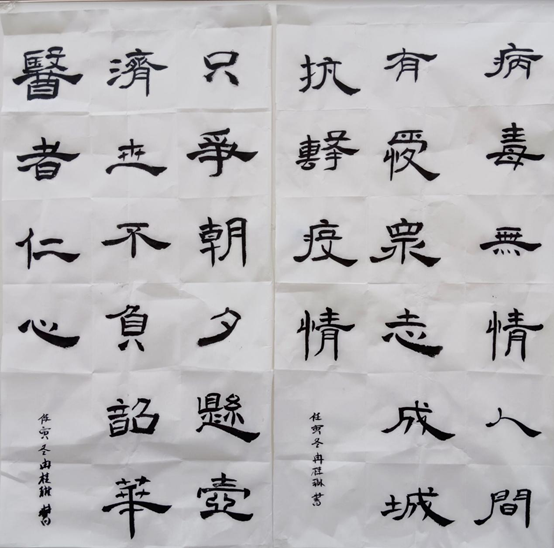 病毒無情人間
有愛眾志成城
抗擊疫情
壬寅冬冉桂琳書
只爭朝夕懸壺
濟世不負韶華
醫者仁心
壬寅冬冉桂琳書